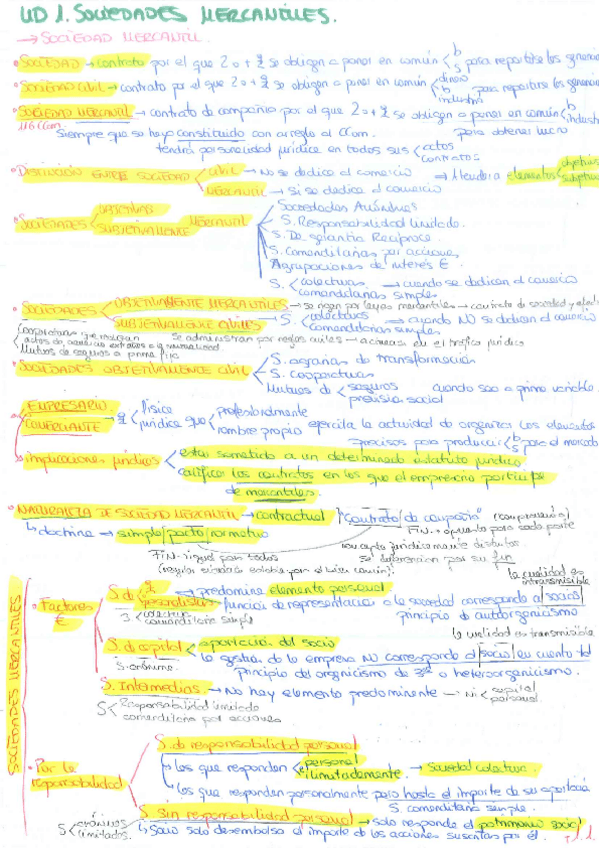 UD 1. SOCIEDADES MERCANTILES.
→ SOCIEDAD MERCANTIL.
• SOCIEDAD → contrato por el que 2 o + se obligan a poner en común b s para repartirse las ganancias
• SOCIEDAD CIVIL → contrato por el que 2 o + se obligan a poner en común dinero b industria para repartirse las ganancias
• SOCIEDAD MERCANTIL → contrato de compañía por el que 2 o + se obligan a poner en común b industria
116 CCom. para obtener lucro
Siempre que se haya constituido con arreglo al CCom.
tendrá personalidad jurídica en todos sus actos contratos
• DISTINCIÓN ENTRE SOCIEDAD CIVIL → No se dedica al comercio ⇒ Atender a elementos objetivos subjetivos
MERCANTIL → Si se dedica al comercio
• SOCIEDADES OBJETIVAS SUBJETIVAMENTE MERCANTIL
Sociedades Anónimas
S. Responsabilidad Limitada.
S. De garantía Recíproca.
S. Comanditarias por acciones
Agrupaciones de interés €
S. colectivas comanditarias simples → cuando se dedican al comercio
• SOCIEDADES OBJETIVAMENTE MERCANTILES → se rigen por leyes mercantiles → contrato de sociedad y
SUBJETIVAMENTE CIVILES → S. colectivas comanditarias simples ⇒ cuando NO se dedican al comercio
Cooperativas que realizan
actos de comercio extraños a la mutualidad
Mutuas de seguros a prima fija
Se administran por reglas civiles → acciones en el tráfico jurídico
• SOCIEDADES OBJETIVAMENTE CIVIL
S. agrarias de transformación
S. Cooperativas
Mutuas de seguros previsión social cuando sea a prima variable.
• EMPRESARIO COMERCIANTE → física jurídica que profesionalmente nombre propio ejercita la actividad de organizar los elementos
precisos para producir b s para el mercado
• implicaciones jurídicas
estar sometido a un determinado estatuto jurídico
calificar los contratos en los que el empresario participe
de mercantiles.
• NATURALEZA DE SOCIEDAD MERCANTIL → contractual "Contrato de compañía" (compraventa)
↳ doctrina → simple/pacto/normativo
FIN → opuesto para cada parte
FIN → igual para todos
concepto jurídicamente distintos
se diferencian por su fin
SOCIEDADES MERCANTILES
• Factores €
S. de personalistas → predomine elemento personal
función de representación a la sociedad corresponde al socio
principio de autoorganicismo
la cualidad es intransmisible
colectiva
comanditaria simple
S. de capital → aportación del socio
la gestión de la empresa NO corresponde al socio en cuanto tal
principio del organicismo de 3os o heteroorganicismo.
la cualidad es transmisible
S. anónima.
S. Intermedias → No hay elemento predominante → Ni capital personal.
S. Responsabilidad limitada
comanditaria por acciones
• Por la responsabilidad
S. de responsabilidad personal
↳ los que responden personal ilimitadamente. → Sociedad colectiva.
↳ los que responden personalmente pero hasta el importe de su aportación
S. comanditaria simple.
S. sin responsabilidad personal → solo responde el patrimonio social
S. anónimas limitadas.
↳ Socio solo desembolsa el importe de las acciones suscritas por él.